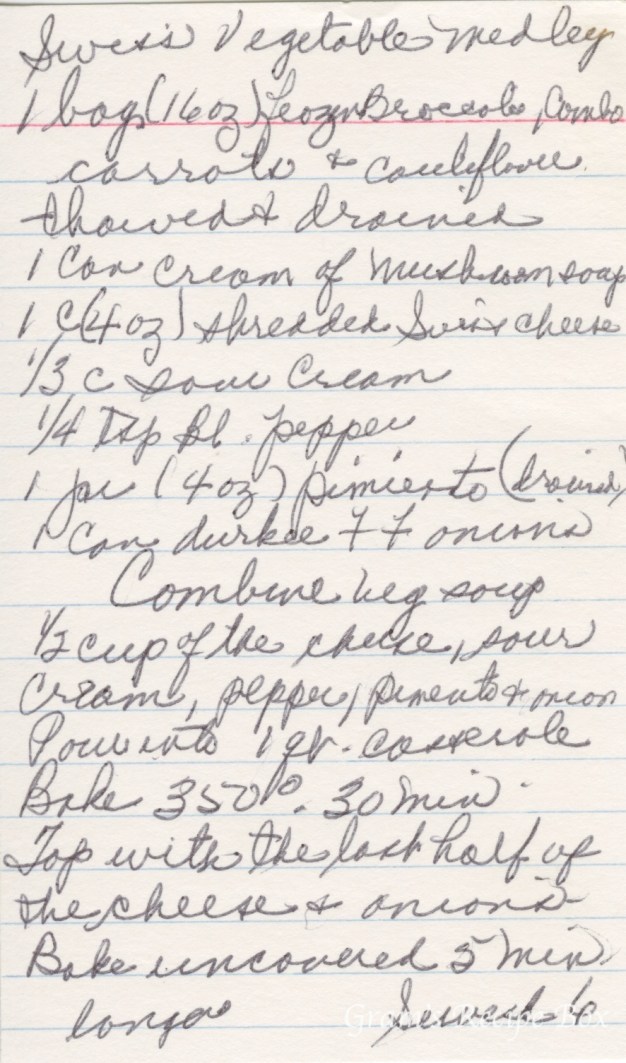 Swiss Vegetable Medley
1 bag (16 oz) frozen Broccole, Combo
carrots & cauliflower
thawed & drained
1 Can Cream of Mushroom soup
1 C (4 oz) shredded Swiss cheese
1/3 C sour Cream
1/4 Tsp Bl. pepper
1 jar (4 oz) pimiento (drained)
1 Can durkee FF onions
Combine veg soup
1/2 cup of the cheese, sour
Cream, pepper, pimento & onion
Pour into 1 qr. casserole
Bake 350° 30 min.
Top with the last half of
the cheese & onions
Bake uncovered 5 min
longer Serves 6
Gram's Recipe Box